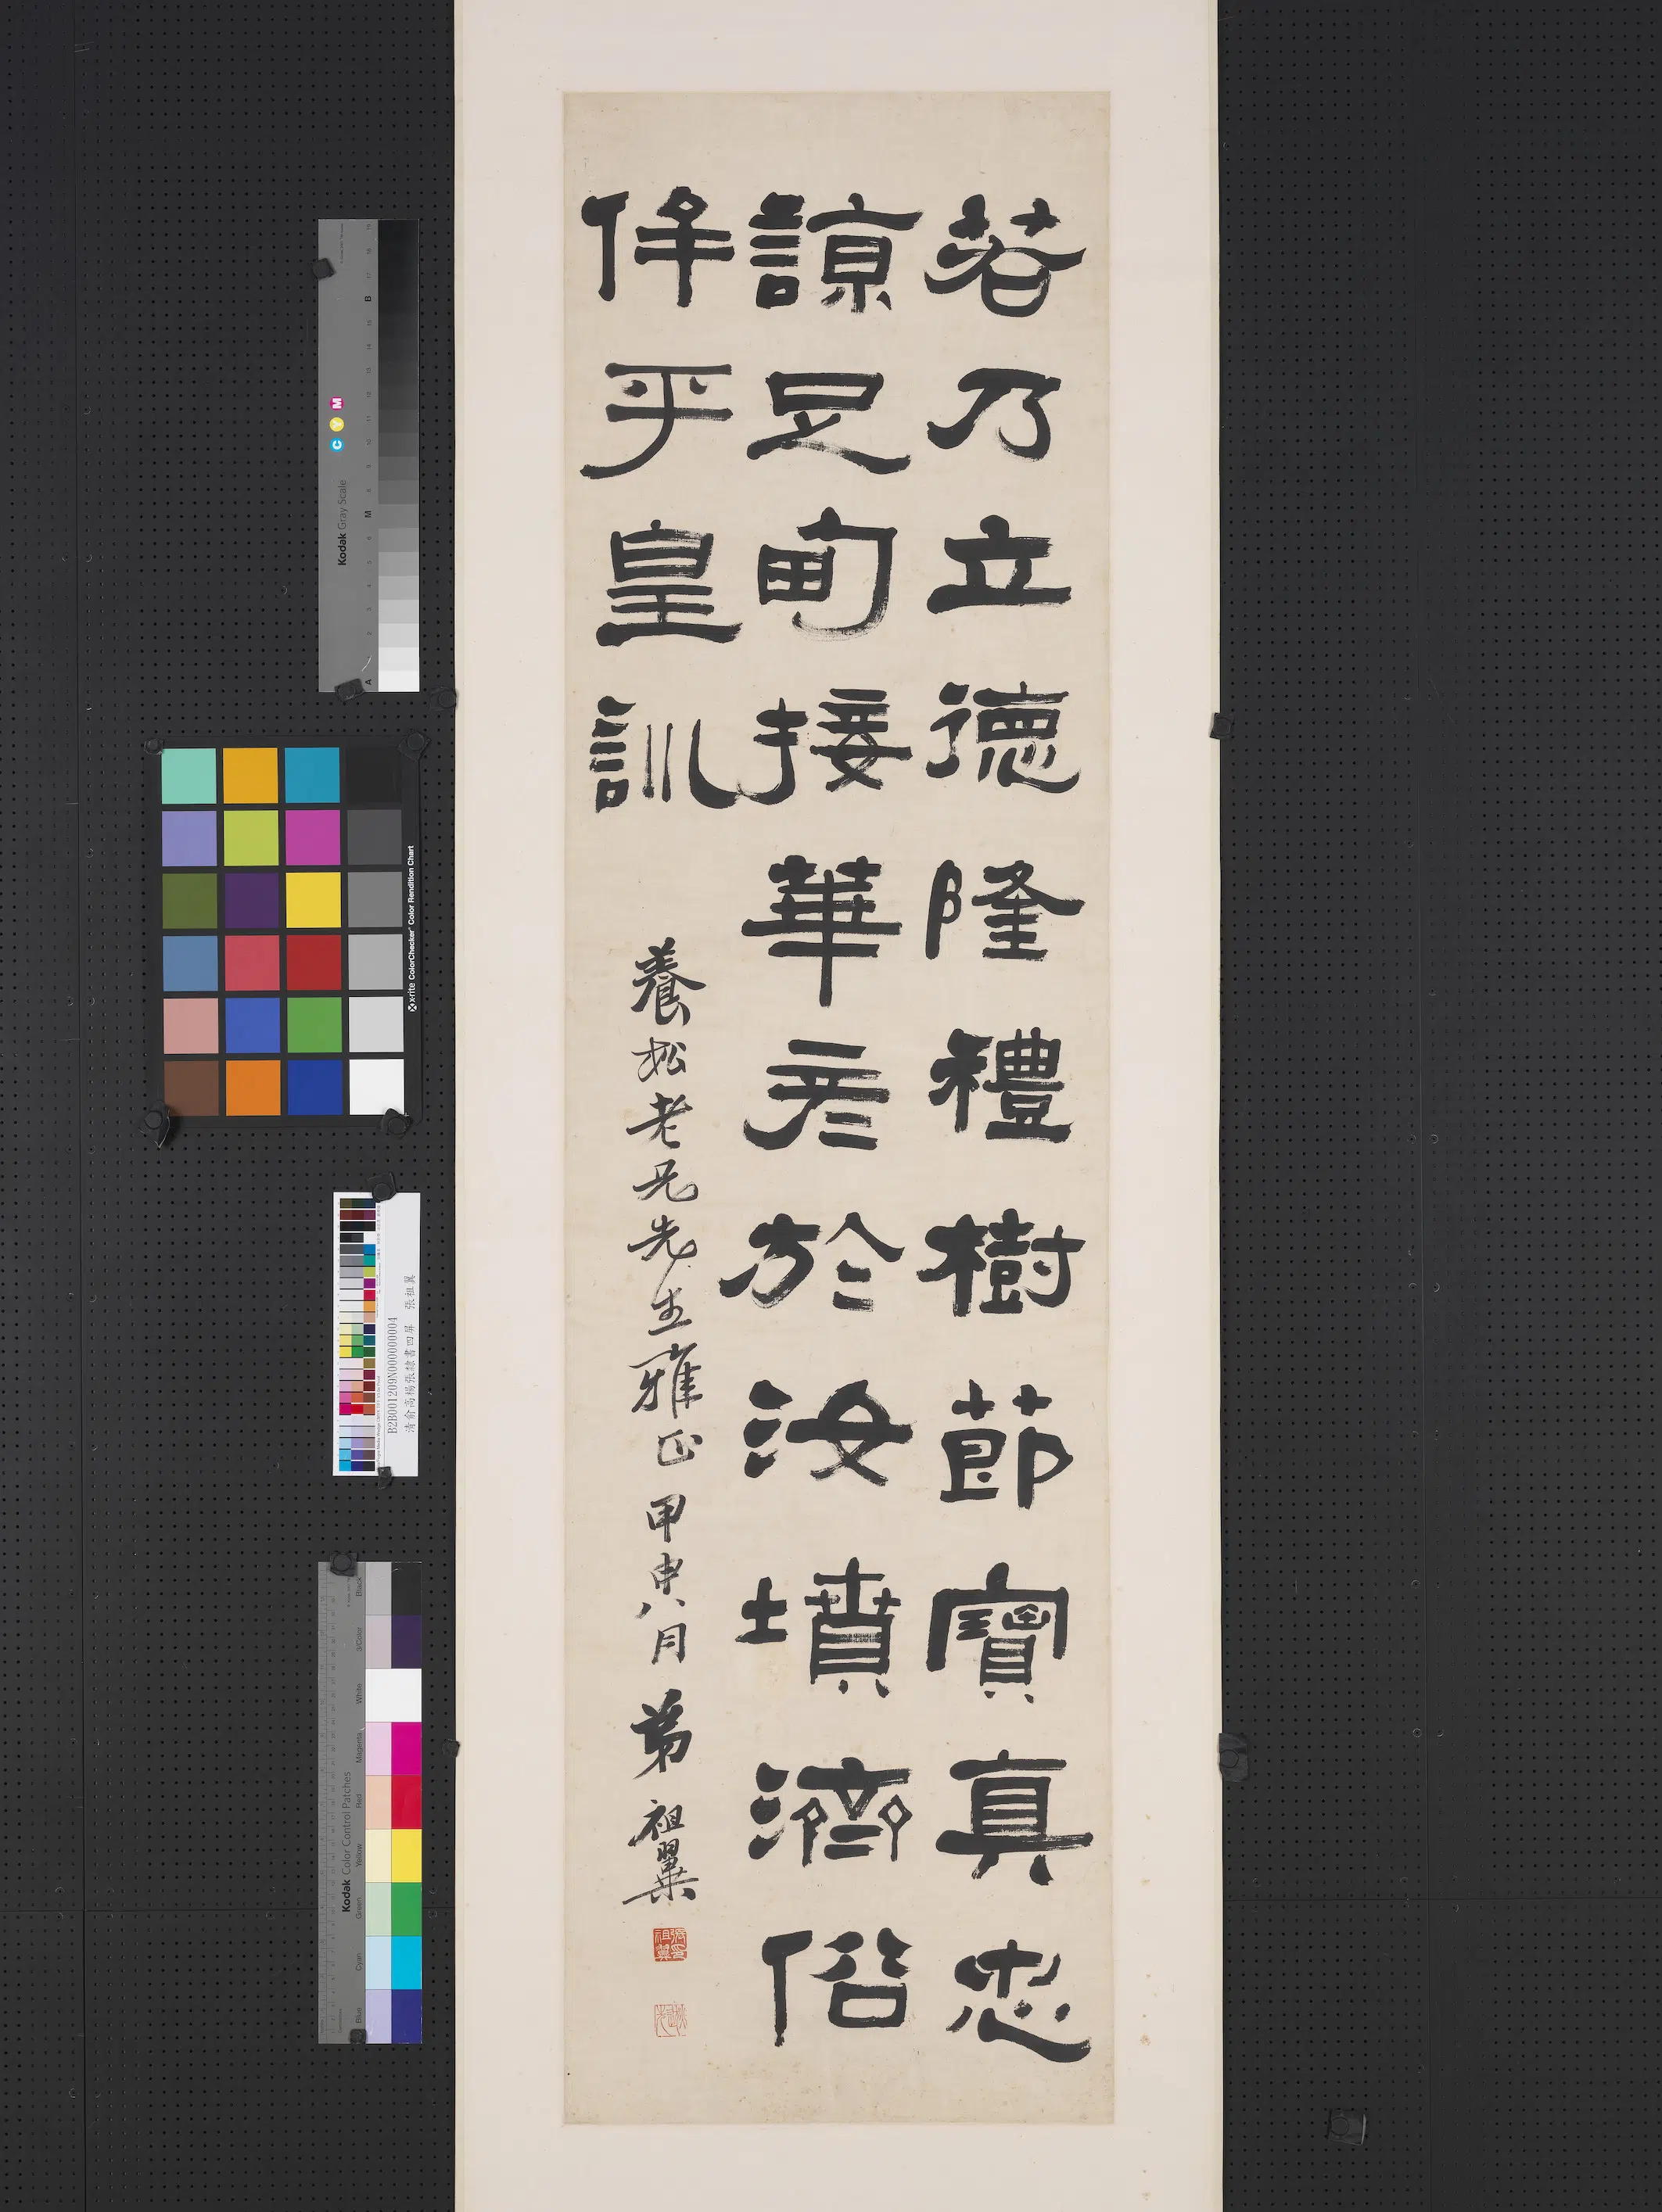 若乃立德隆禮樹節寶真忠
諒足甸接華彥於汝墳濟俗
侔乎皇訓
養松老兄先生雅正 甲申八月 弟祖翼
張祖翼印
Kodak Gray Scale
C Y M
A
M
B
x-rite ColorChecker Color Rendition Chart
B2B001209N000000004
清俞高楊張隸書四屏 張祖翼
Kodak Color Control Patches
Blue
Cyan
Green
Yellow
Red
Magenta
White
3/Color
Black